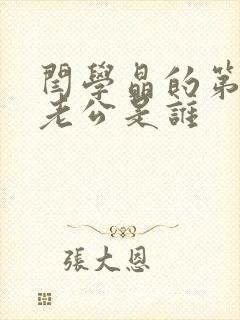 閆學晶的第
老公是誰
張大恩